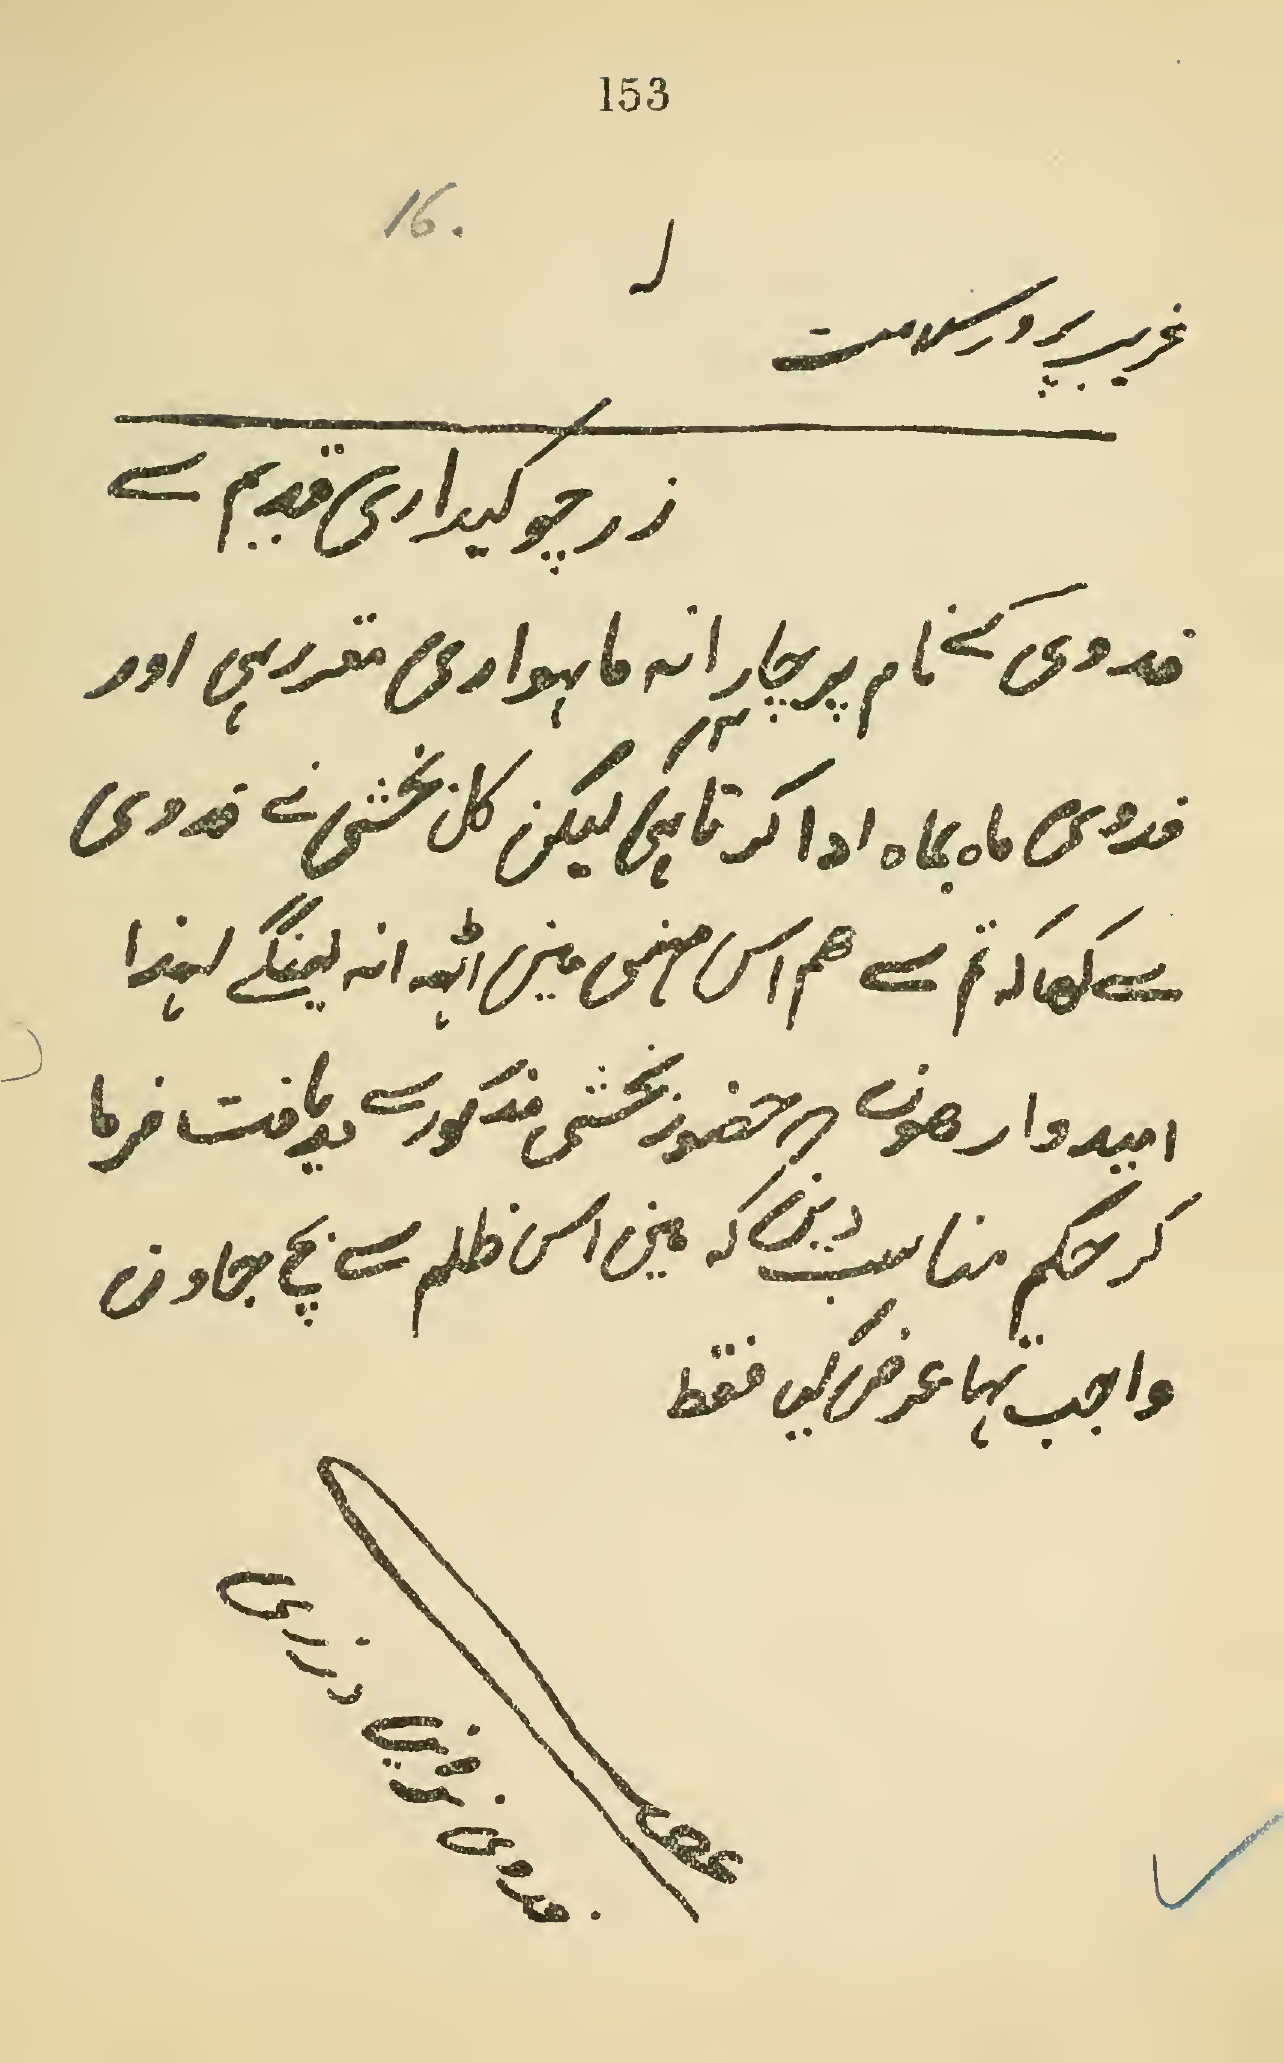 153
16.
غریب پرور سلامت
زر چوکیداری قدیم سے
فدوی کے نام پر چار انہ ماہواری مقرر ہی اور
فدوی ماہ بماہ ادا کرتا ہی لیکن کل بخشی نے فدوی
سے کہا کہ تم سے هم اس مہنی مین اٹہہ انہ لینگے لہذا
امیدوار هون کہ حضور بخشی مذکور سے دریافت فرما
کر حکم مناسب دین کہ مین اس ظلم سے بچ جاون
واجب تہا عرض کیا فقط
فدوی درزی